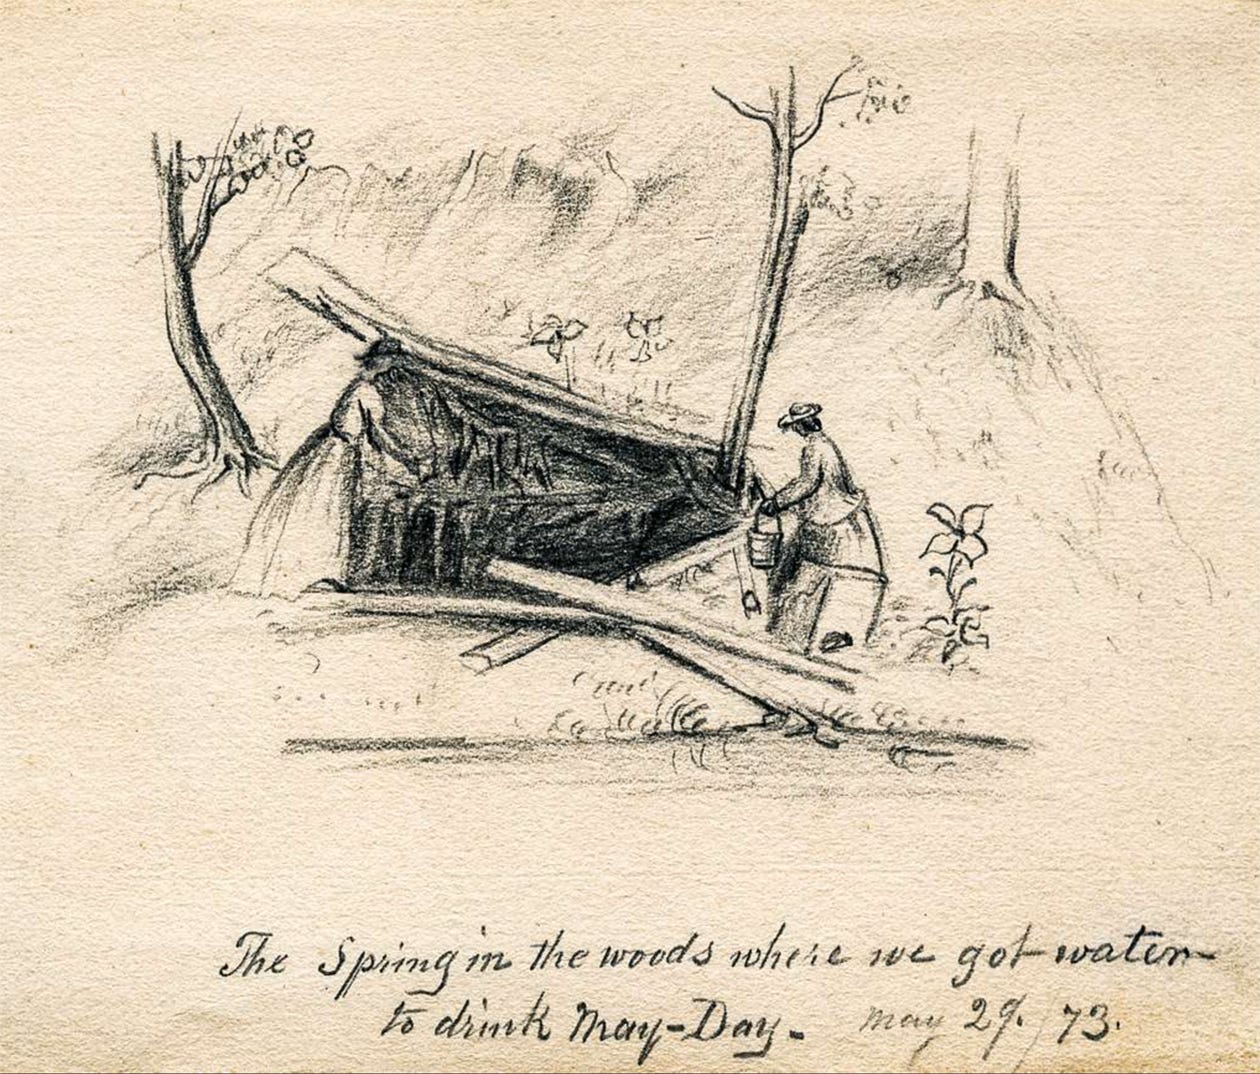 The Spring in the woods where we got water
to drink May-Day. May 29. /73.